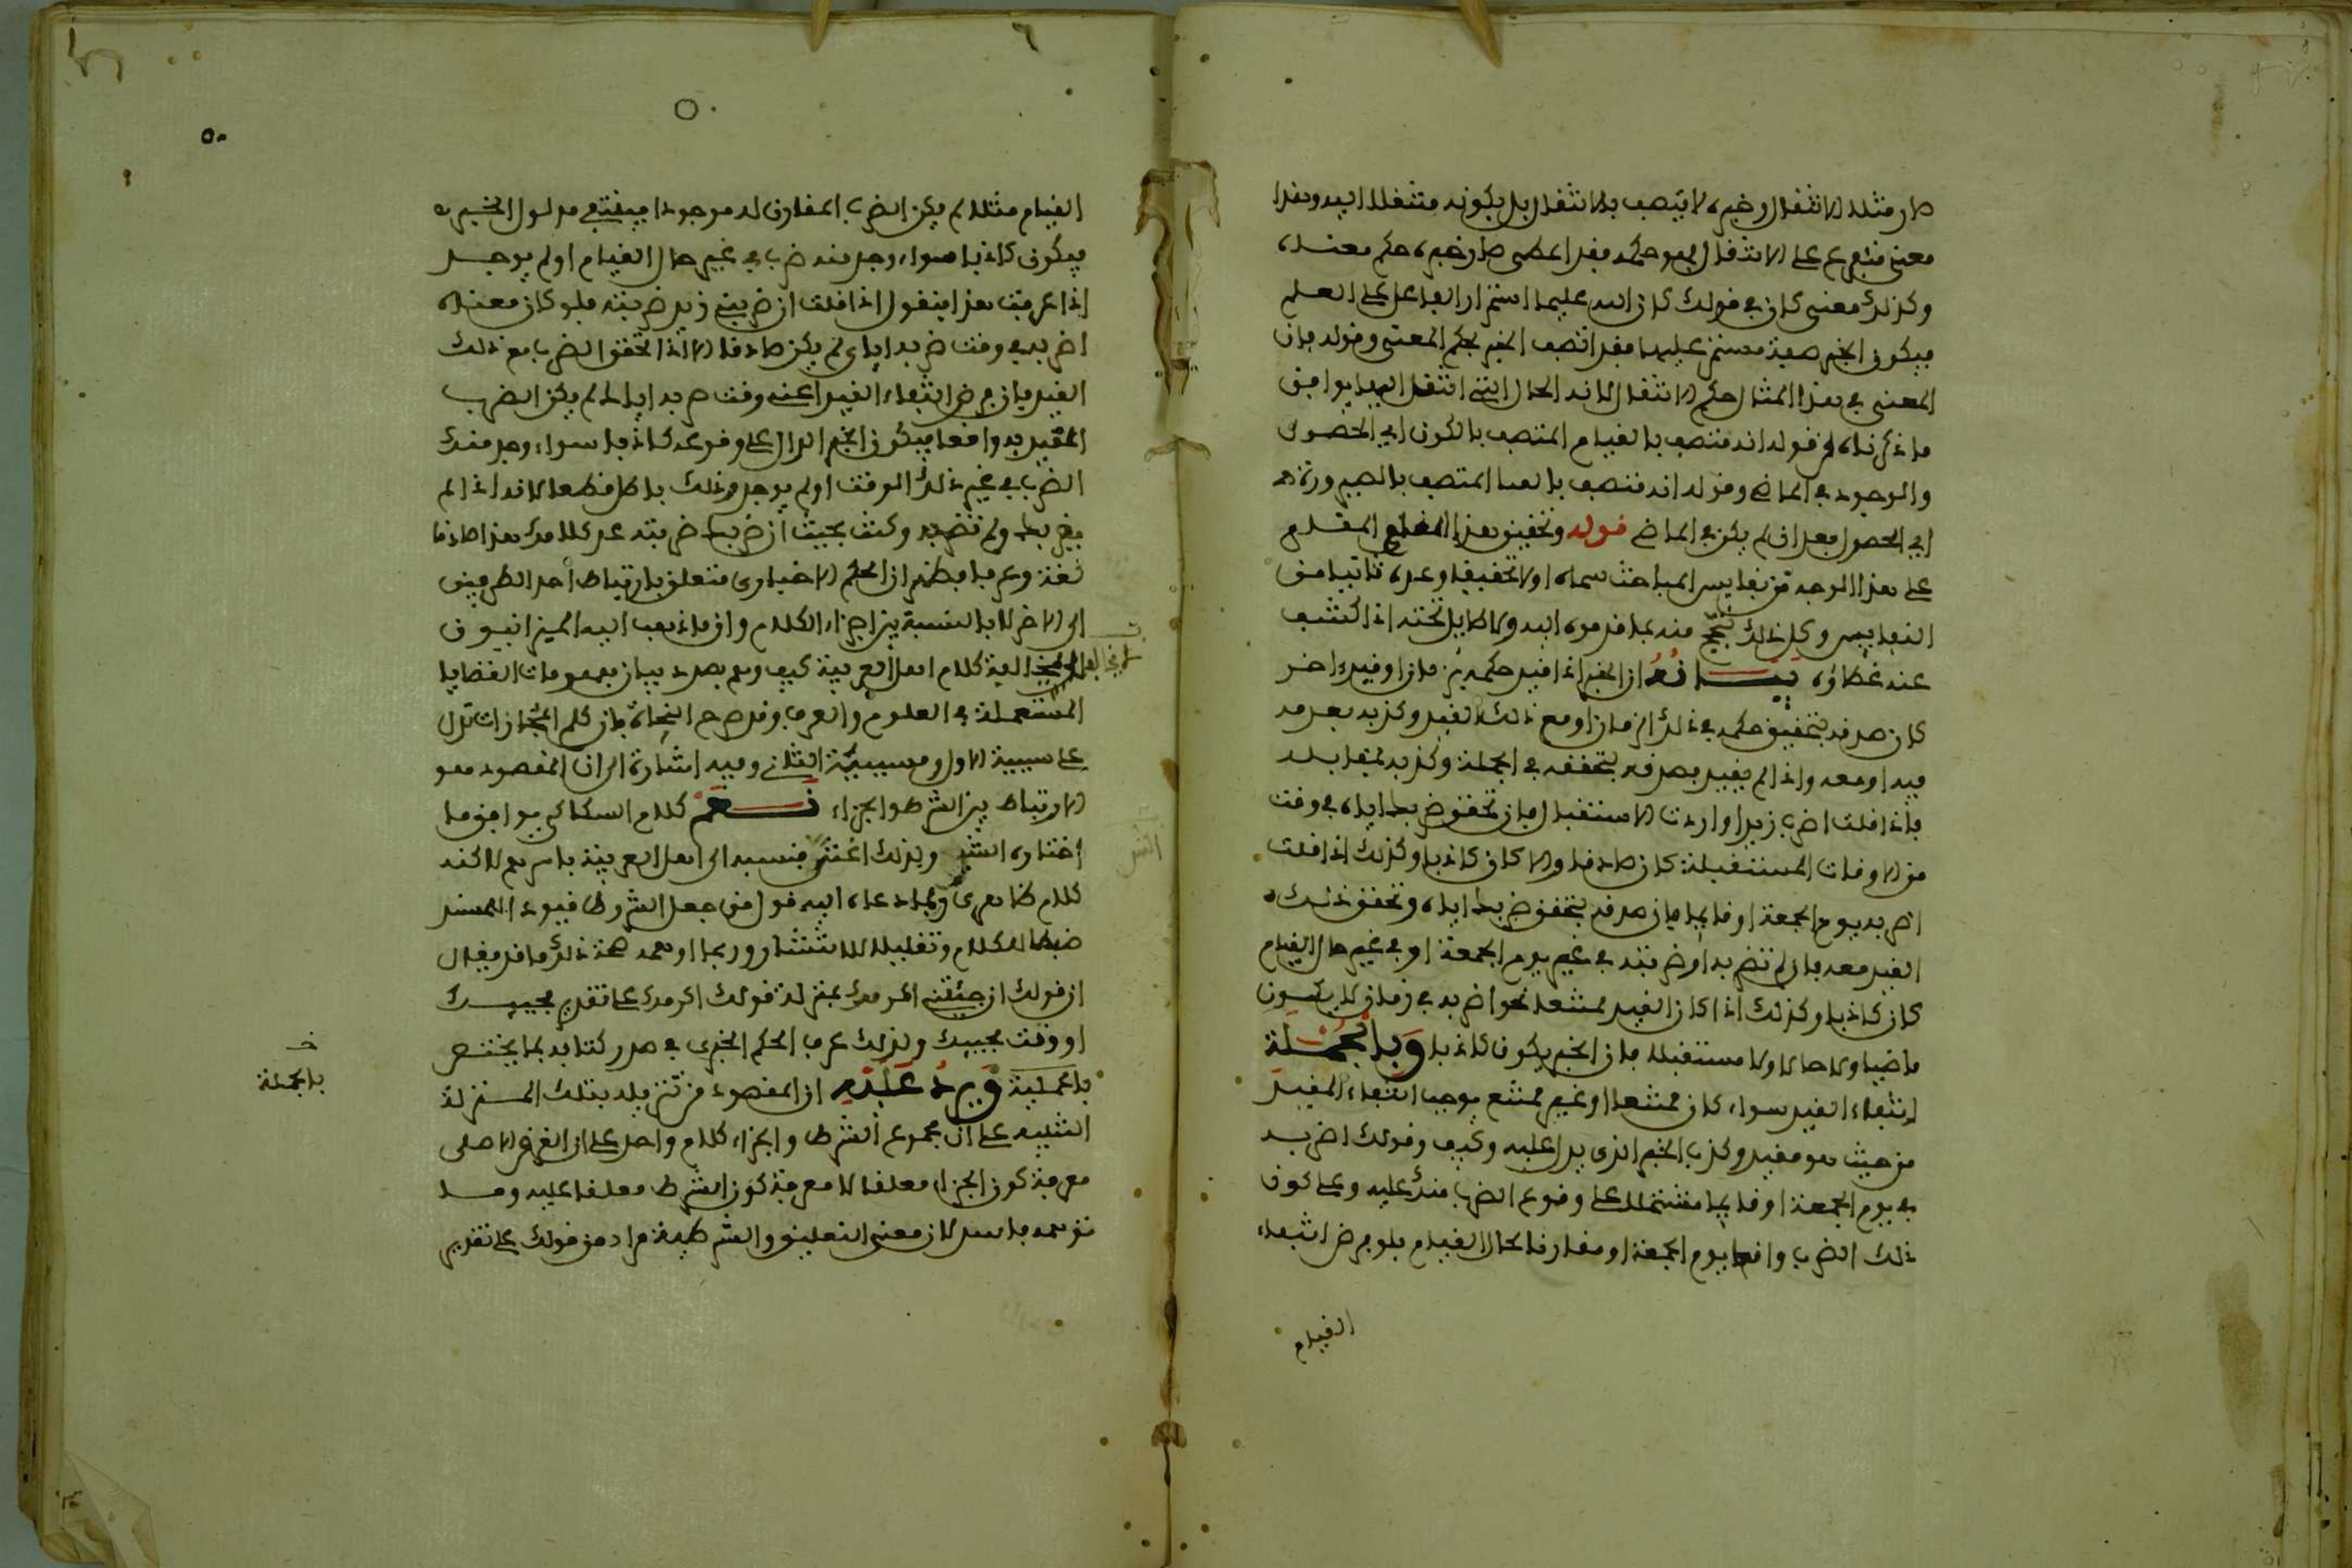 صار مثلا الانتقال وخبره لا يتصف بالانتقال بل بكونه منتقلا اليه وهذا
معنى متفرع على الانتقال فهو حكمه فقد اعطى صار خبره حكم معناه
وكذلك معنى كان في قولك كان الله عليما استمرار الفاعل على العلم
فيكون الخبر صفة مستمر عليها فقد اتصف الخبر بحكم المعنى وقوله فان
المعنى في هذا المثال حكم الانتقال لانه الحال التي انتقل اليها يوافق
ما ذكرناه قوله انه متصف بالقيام المتصف بالكون اي الحصول
والوجود في الماضي وقوله انه متصف بالغنا المتصف بالصيرورة
اي الحصول بعد ان لم يكن في الماضي قوله وتحقيق هذا المقام
على هذا الوجه من نفايس المباحث سماه اولا تحقيقا وعده ثانيا من
النفايس وكل ذلك تبجح منه بما قدموه اليه ولا طايل تحته اذا كشف
عنه غطاؤه بيانه ان الخبر اذا قيد حكمه بزمان او قيد اخر
كان صدقه بتحقيق حكمه في ذلك الزمان او مع ذلك القيد وكذبه بعدمه
فيه او معه واذا لم يقيد فصدقه بتحققه في الجملة وكذبه بمقابله
فاذا قلت اضرب زيدا واردت الاستقبال فان تحقق ضربك اياه في وقت
من الاوقات المستقبلة كان صادقا والا كان كاذبا وكذلك اذا قلت
اضربه يوم الجمعة او قايما فان صدقه بتحقق ضربك اياه وتحقق ذلك
القيد معه فان لم تضربه او ضربته في غير يوم الجمعة او في غير حال القيام
كان كاذبا وكذلك اذا كان القيد ممتنعا نحو اضربه في زمان لا يكون
ماضيا ولا حالا ولا مستقبلا فان الخبر يكون كاذبا وبالجملة
انتفاء القيد سواء كان ممتنعا او غير ممتنع يوجب انتفاء المقيد
من حيث هو مقيد وكذب الخبر الذي يدل عليه وكيف وقولك اضربه
في يوم الجمعة او قايما مشتمل على وقوع الضرب منك عليه وعلى كون
ذلك الضرب واقعا يوم الجمعة او مقارنا لحال القيام فلو فرض انتفاء
القيام
٦
٥٠
القيام مثلا لم يكن الضرب المقارن له موجودا فينتفي مدلول الخبر
فيكون كاذبا سواء وجد منه ضرب في غير حال القيام او لم يوجد
اذا عرفت هذا فنقول اذا قلت ان ضربني زيد ضربته فلو كان معناه
اضربه في وقت ضربه اياي لم يكن صادقا الا اذا تحقق الضرب مع ذلك
القيد فان فرض انتفاء القيد اعني وقت ضربه اياك لم يكن الضرب
المقيد به واقعا فيكون الخبر الدال على وقوعه كاذبا سواء وجد منك
الضرب في غير ذلك الوقت او لم يوجد وذلك باطل قطعا لانه اذا لم
يضربك ولم تضربه وكنت بحيث ان ضربك ضربته عد كلامك هذا صادقا
لغة وعرفا فظهر ان الحكم الاخباري متعلق بارتباط احد الطرفين
الى الاخر لا بالنسبة بين اجزاء الكلام وان ما ذهب اليه الميزانيون
كلام اهل العربية كيف وهم بصدد بيان مفهومات القضايا
المستعملة في العلوم والعرف وقد صرح النحاة بان كلم المجازات تدل
على سببية الاول ومسببية الثاني وفيه اشارة الى ان المقصود هو
الارتباط بين الشرط والجزاء نعم كلام السكاكي يوافق ما
اختاره الشر ولذلك اغتر فنسبه الى اهل العربية باسرهم لاكنه
كلام ظاهري وبما دعاه اليه قول من جعل الشروط قيود المسند
ضبطا للكلام وتقليلا للانتشار وربما اوهمه صحة ذلك ما قد يقال
ان قولك ان جئتني اكرمك بمنزلة قولك اكرمك على تقدير مجيبك
او وقت مجيبك ولذلك عرف الحكم الخبري في صدر كتابه بما يختص
بالحملية ويرد عليه ان المقصود من تنزيله بتلك المنزلة
التنبيه على ان مجموع الشرط والجزاء كلام واحد على ان الغرض الاصلي
معرفة كون الجزاء معلقا لا معرفة كون الشرط معلقا عليه وما
توهمه فاسد لان معنى التعليق والشرطية مراد من قولك على تقدير
خـ
بالجملة